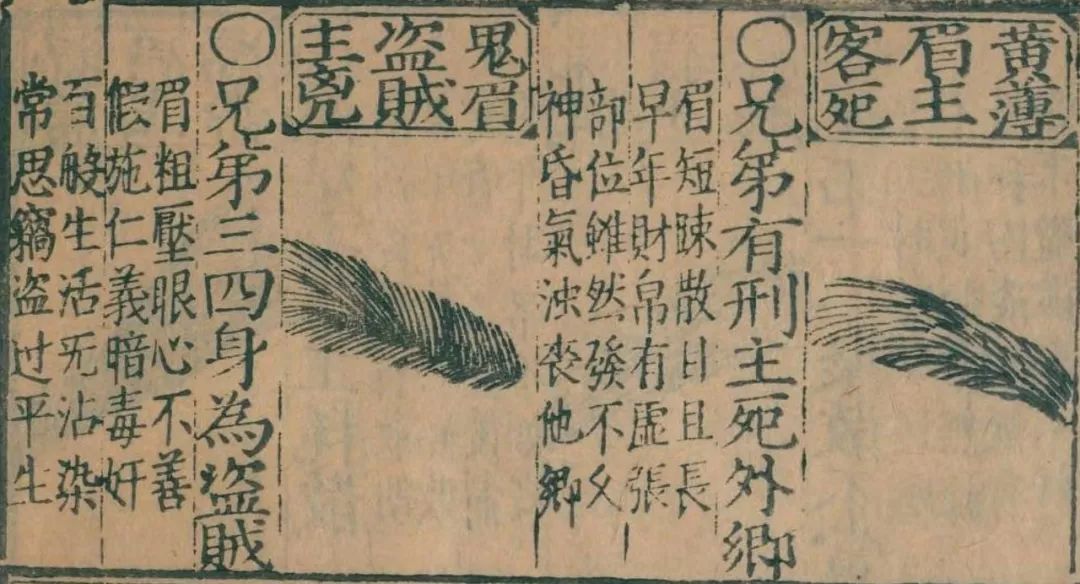 黄薄
眉主
客死
〇兄弟有刑主死外鄉
眉短踈散目且長
早年財帛有虛張
部位雖然發不久
神昏氣浊丧他鄉
鬼眉
盗賊
主兇
〇兄弟三四身為盗賊
眉粗壓眼心不善
假施仁義暗毒奸
百般生活无沾染
常思竊盗过平生